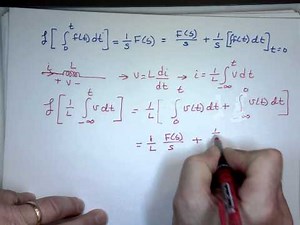 ℒ[∫₀ᵗ f(t) dt] = 1/s F(s) = F(s)/s + 1/s [∫f(t)dt]ₜ₌₀
i L + v - → v = L di/dt → i = 1/L ∫₋∞ᵗ v dt
ℒ[1/L ∫₋∞ᵗ v dt] = 1/L [∫₀ᵗ v(t) dt + ∫₋∞⁰ v(t) dt]
= 1/L F(s)/s + 1